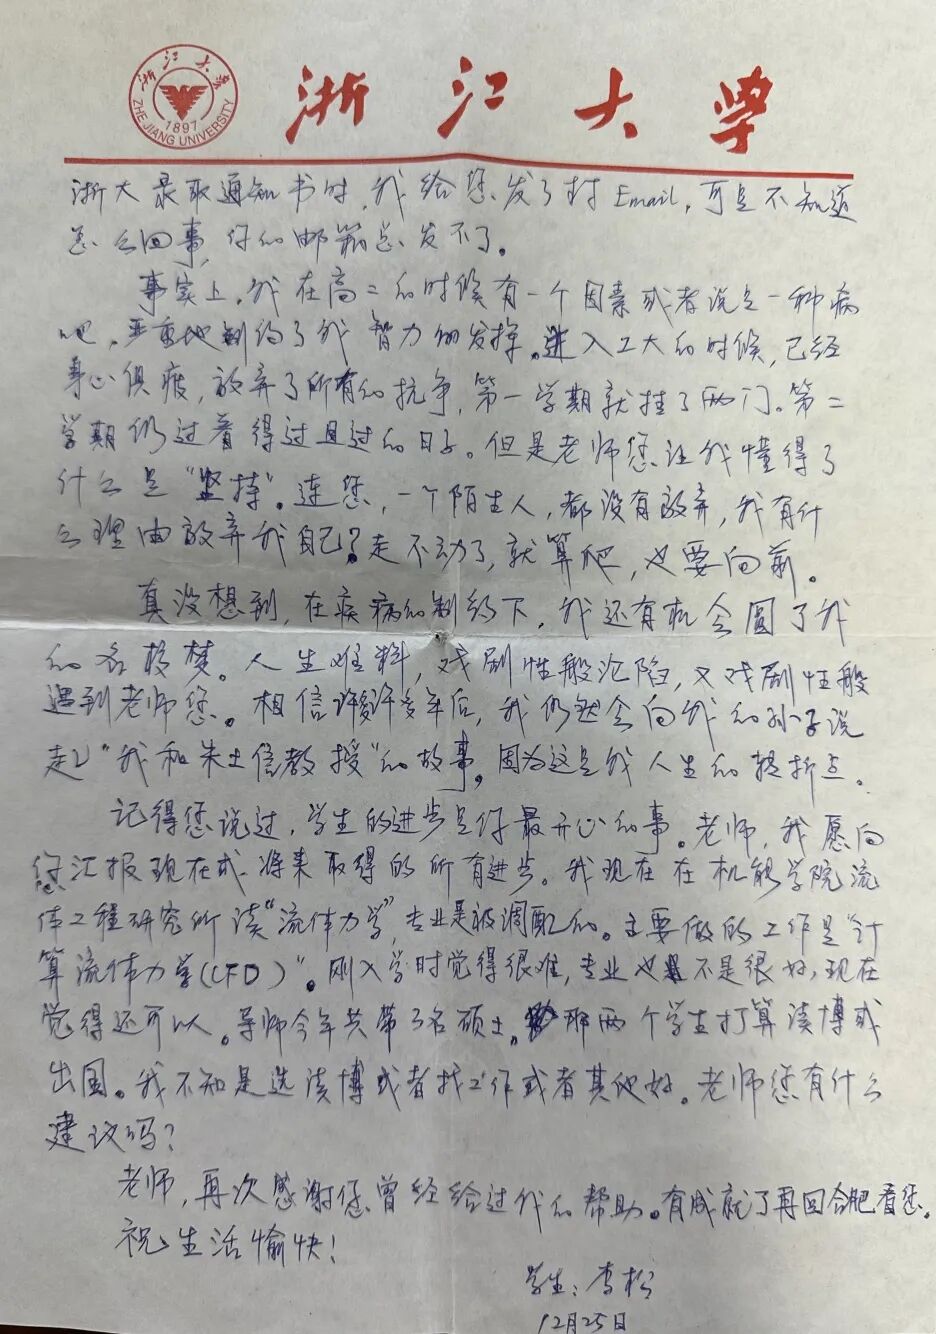 浙江大学
ZHE JIANG UNIVERSITY
1897
浙江大学
浙大录取通知书时,我给您发了封Email,可是不知道
怎么回事,你的邮箱总发不了。
事实上,我在高二的时候有一个因素或者说是一种病
吧,严重地制约了我智力的发挥。进入工大的时候,已经
身心俱疲,放弃了所有的抗争,第一学期就挂了两门。第二
学期仍过着得过且过的日子。但是老师您让我懂得了
什么是“坚持”。连您,一个陌生人,都没有放弃,我有什
么理由放弃我自己?走不动了,就算爬,也要向前。
真没想到,在疾病的制约下,我还有机会圆了我
的名校梦。人生难料,戏剧性般沦陷,又戏剧性般
遇到老师您。相信许许多年后,我仍然会向我的孙子说
起“我和朱士信教授”的故事,因为这是我人生的转折点。
记得您说过,学生的进步是你最开心的事。老师,我愿向
您汇报现在或将来取得的所有进步。我现在在机能学院流
体工程研究所读“流体力学”,专业是被调配的。主要做的工作是“计
算流体力学(CFD)”。刚入学时觉得很难,专业也不是很好,现在
觉得还可以。导师今年共带了3名硕士,那两个学生打算读博或
出国。我不知是选读博或者找工作或者其他好。老师您有什么
建议吗?
老师,再次感谢您曾经给过我的帮助。有成就了再回合肥看您。
祝生活愉快!
学生:李松
12月25日